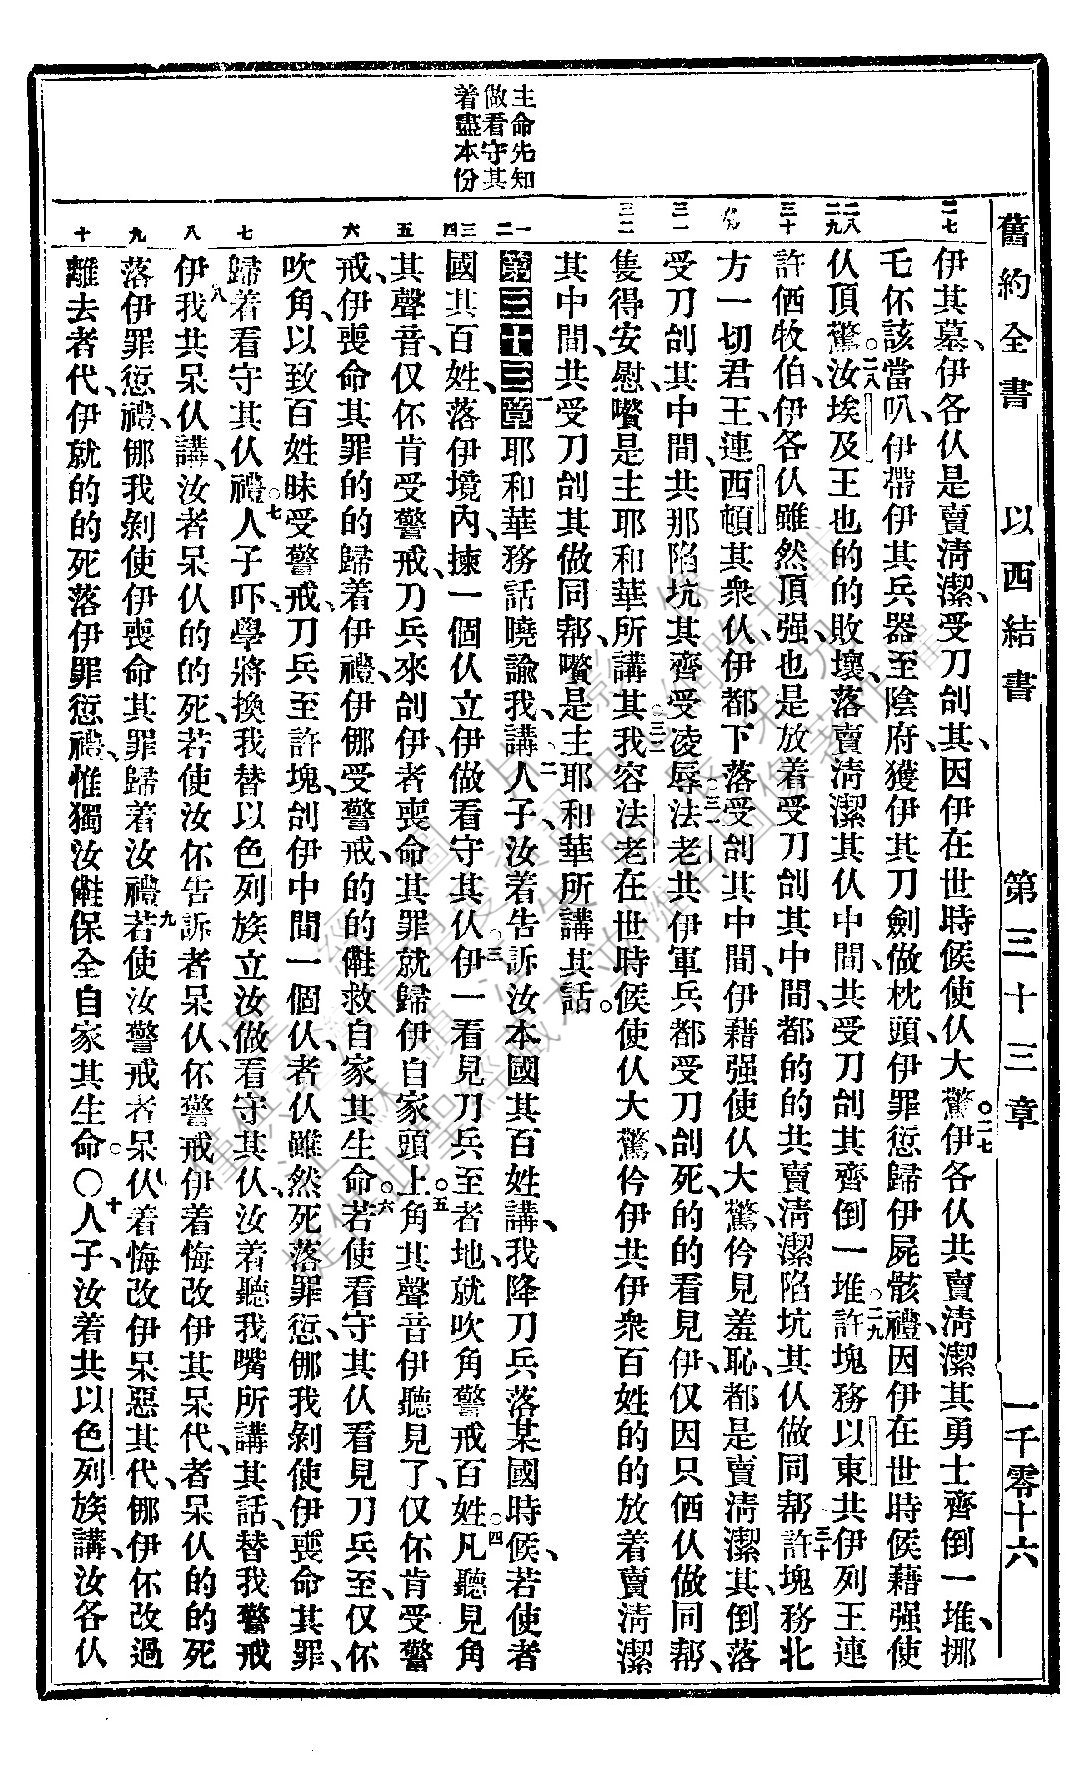 舊約全書 以西結書 第三十三章 一千零十六
主命先知
做看守其
着盡本份
伊其墓、伊各仈是賣淸潔、受刀刣其、因伊在世時候使仈大驚、○二七伊各仈共賣淸潔其勇士齊倒一堆、挪
乇伓該當叭、伊帶伊其兵器至陰府、獲伊其刀劍做枕頭、伊罪愆歸伊屍骸禮、因伊在世時候藉强使
仈頂驚、○二八汝埃及王也的的敗壞、落賣淸潔其仈中間、共受刀刣其齊倒一堆、○二九許塊務以東共伊列王連
許価牧伯、伊各仈雖然頂强、也是放着受刀刣其中間、都的的共賣淸潔陷坑其仈做同帮、三十許塊務北
方一切君王、連西頓其衆仈、伊都下落受刣其中間、伊藉强使仈大驚、仱見羞恥、都是賣淸潔其、倒落
受刀刣其中間、共那陷坑其齊受凌辱、○三一法老共伊軍兵都受刀刣死、的的看見伊、仅因只価仈做同帮、
隻得安慰、嚽是主耶和華所講其、○三二我容法老在世時候、使仈大驚、仱伊共伊衆百姓的的放着賣淸潔
其中間、共受刀刣其做同帮、嚽是主耶和華所講其話。
第三十三章 一耶和華務話曉諭我、講、二人子、汝着告訴汝本國其百姓、講、我降刀兵落某國時候、若使者
國其百姓、落伊境內、揀一個仈、立伊做看守其仈、○三伊一看見刀兵至者地、就吹角警戒百姓、○四凡聽見角
其聲音、仅伓肯受警戒、刀兵來刣伊者喪命其罪就歸伊自家頭上、○五角其聲音伊聽見了、仅伓肯受警
戒、伊喪命其罪的的歸着伊禮、伊㑚受警戒、的的䧹救自家其生命、○六若使看守其仈看見刀兵至、仅伓
吹角、以致百姓昧受警戒、刀兵至許塊、刣伊中間一個仈、者仈雖然死落罪愆、㑚我剝使伊喪命其罪、
歸着看守其仈禮、○七人子吓、學將換我替以色列族立汝做看守其仈、汝着聽我嘴所講其話、替我警戒
伊、八我共呆仈講、汝者呆仈的的死、若使汝伓告訴者呆仈、伓警戒伊着悔改伊其呆代、者呆仈的的死
落伊罪愆禮、㑚我剝使伊喪命其罪歸着汝禮、九若使汝警戒者呆仈、着悔改伊呆惡其代、㑚伊伓改過
離去者代、伊就的的死落伊罪愆禮、惟獨汝䧹保全自家其生命。○十人子、汝着共以色列族講、汝各仈
二七
二八
二九
三十
三一
三二
一
二
三
四
五
六
七
八
九
十